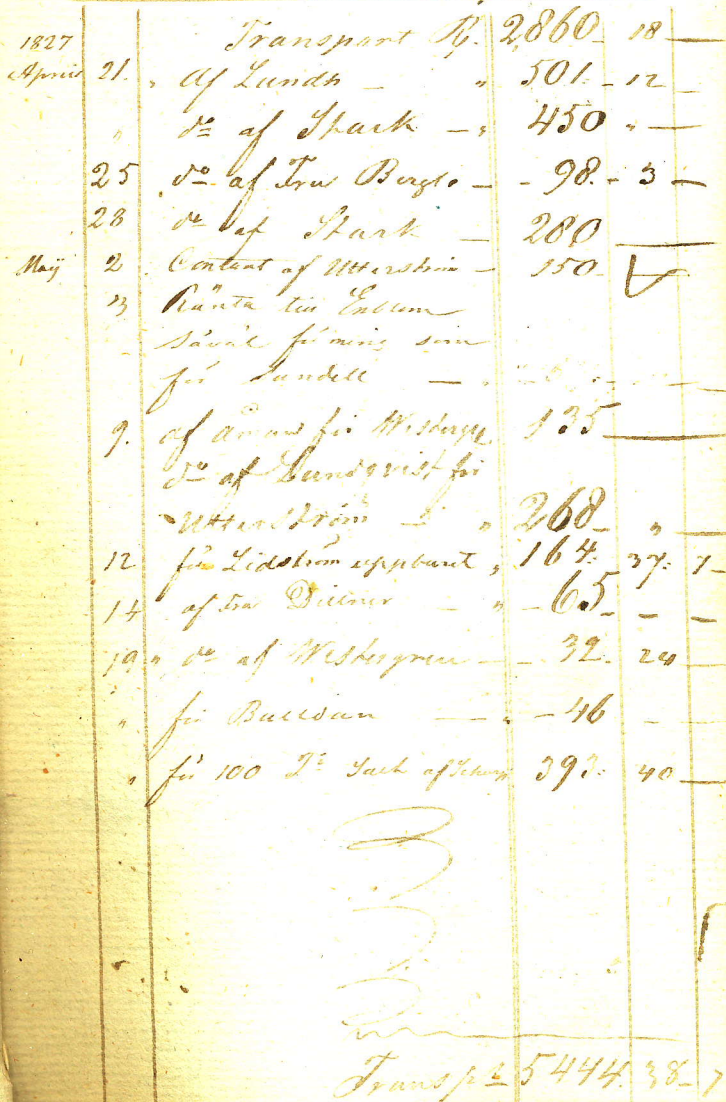 1827 Transport R. 2860 18 —
April 21. " Af Lundh — " 501. - 12 —
" do af Stark — " 450 " —
25 do af Fru Bergl. — - 98. - 3 —
28 do af Stark — 280 —
Maij 2 Contant af Utterström — 150
3 Ränta till Enbom
såväl för mine som
för Lundell —
9. af för Westergr. 135 —
do af Lundqvist för
Utterström — " 268 " —
12 för Lidström uppburet " 164. 37. 7
14 af Fru Dillner — " - 65 - - -
19 " do af Westergren — - 32. 24
" för — " - 46 - -
" för 100 af 393. 40 —
Transp. R 5444. 38 - 7